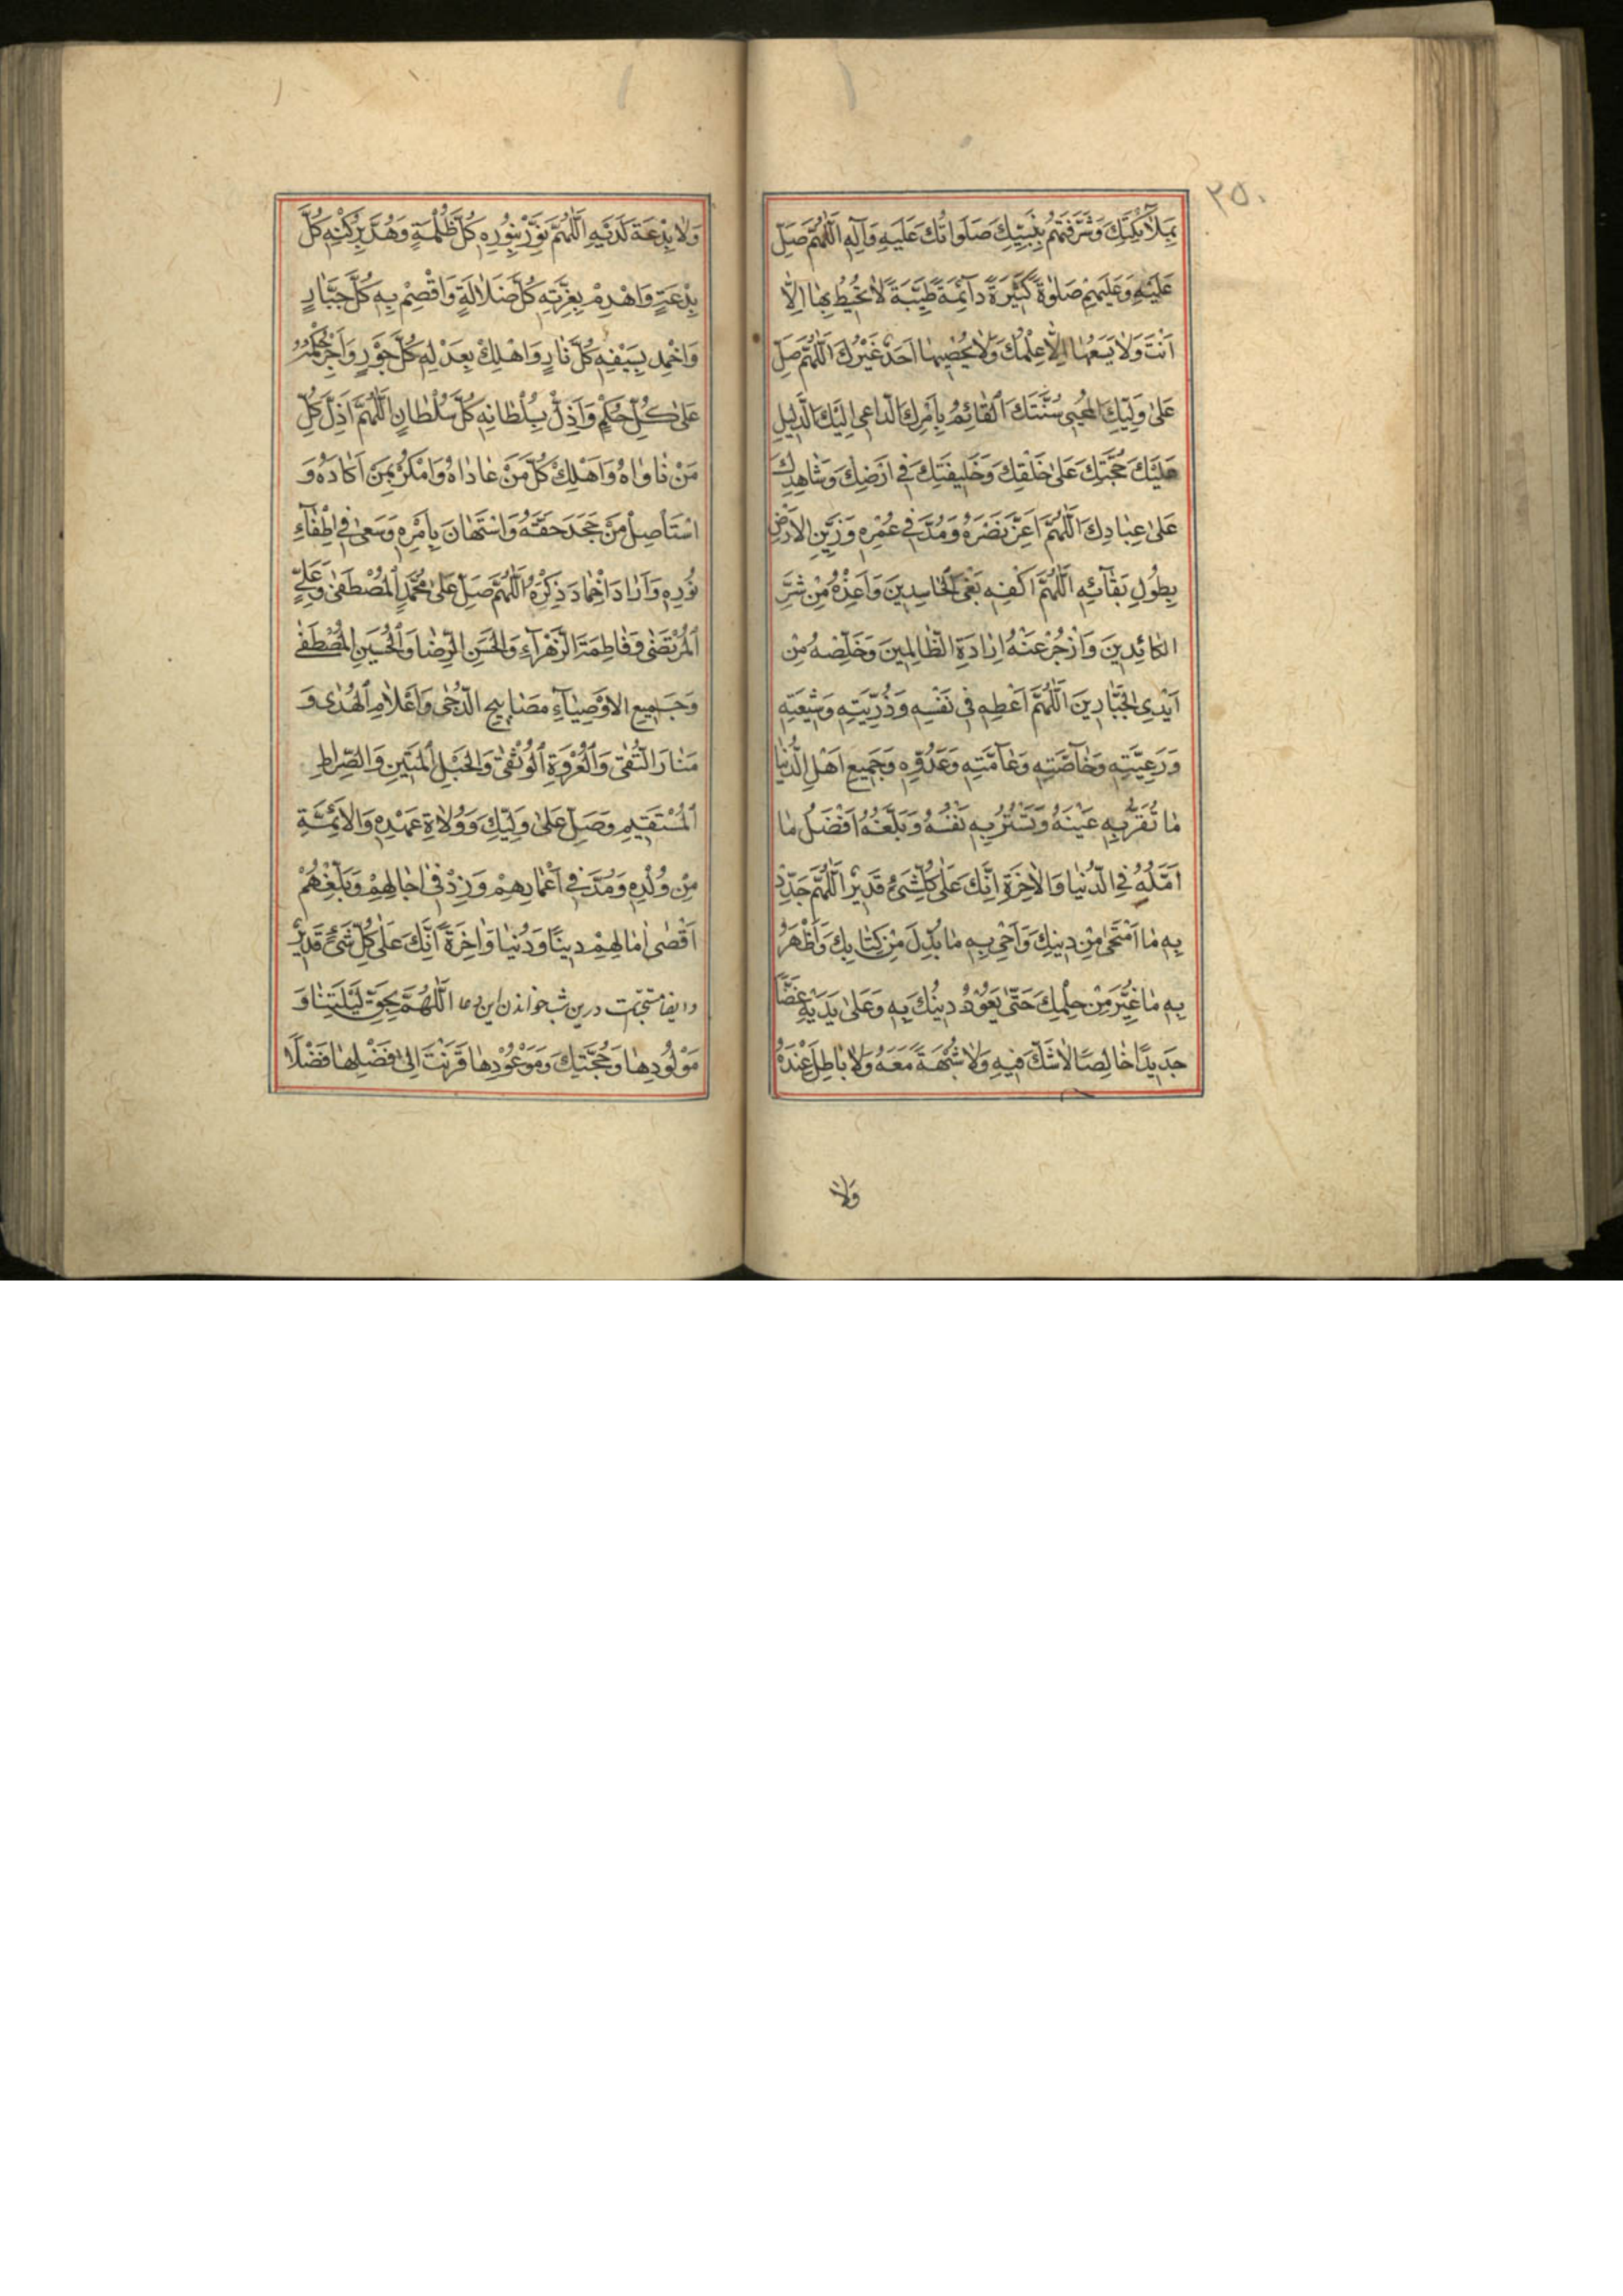 ٢٥٠
بِمَلَآئِكَتِكَ وَشَرَّفْتَهُمْ بِنَبِيِّكَ صَلَوَاتُكَ عَلَيْهِ وَآلِهِ اَللّٰهُمَّ صَلِّ
عَلَيْهِ وَعَلَيْهِمْ صَلٰوةً كَثِيرَةً دآئِمَةً طَيِّبَةً لَا يُحِيطُ بِهَا اِلَّا
اَنْتَ وَلَا يَسَعُهَا اِلَّا عِلْمُكَ وَلَا يُحْصِيهَا اَحَدٌ غَيْرُكَ اَللّٰهُمَّ صَلِّ
عَلٰى وَلِيِّكَ الْمُحْيِى سُنَّتَكَ الْقَائِمُ بِاَمْرِكَ الدَّاعِى اِلَيْكَ الدَّلِيلِ
عَلَيْكَ حُجَّتِكَ عَلٰى خَلْقِكَ وَخَلِيفَتِكَ فِى اَرْضِكَ وَشَاهِدِكَ
عَلٰى عِبَادِكَ اَللّٰهُمَّ اَعِزَّ نَصْرَهُ وَمُدَّ فِى عُمْرِهِ وَزَيِّنِ الْاَرْضَ
بِطُولِ بَقَآئِهِ اَللّٰهُمَّ اكْفِهِ بَغْىَ الْحَاسِدِينَ وَاَعِذْهُ مِنْ شَرِّ
الْكَائِدِينَ وَازْجُرْ عَنْهُ اِرَادَةَ الظَّالِمِينَ وَخَلِّصْهُ مِنْ
اَيْدِى الْجَبَّارِينَ اَللّٰهُمَّ اَعْطِهِ فِى نَفْسِهِ وَذُرِّيَّتِهِ وَشِيعَتِهِ
وَرَعِيَّتِهِ وَخَآصَّتِهِ وَعَآمَّتِهِ وَعَدُوِّهِ وَجَمِيعِ اَهْلِ الدُّنْيَا
مَا تُقِرُّ بِهِ عَيْنَهُ وَتَسُرُّ بِهِ نَفْسَهُ وَبَلِّغْهُ اَفْضَلَ مَا
اَمَّلَهُ فِى الدُّنْيَا وَالْاٰخِرَةِ اِنَّكَ عَلٰى كُلِّ شَىْءٍ قَدِيرٌ اَللّٰهُمَّ جَدِّدْ
بِهِ مَا امْتَحٰى مِنْ دِينِكَ وَاَحْىِ بِهِ مَا بُدِّلَ مِنْ كِتَابِكَ وَاَظْهِرْ
بِهِ مَا غُيِّرَ مِنْ حُكْمِكَ حَتّٰى يَعُودَ دِينُكَ بِهِ وَعَلٰى يَدَيْهِ غَضًّا
جَدِيدًا خَالِصًا لَا شَكَّ فِيهِ وَلَا شُبْهَةَ مَعَهُ وَلَا بَاطِلَ عِنْدَهُ
وَلَا
وَلَا بِدْعَةَ لَدَيْهِ اَللّٰهُمَّ نَوِّرْ بِنُورِهِ كُلَّ ظُلْمَةٍ وَهُدَّ بِرُكْنِهِ كُلَّ
بِدْعَةٍ وَاهْدِمْ بِعِزَّتِهِ كُلَّ ضَلَالَةٍ وَاقْصِمْ بِهِ كُلَّ جَبَّارٍ
وَاخْمِدْ بِسَيْفِهِ كُلَّ نَارٍ وَاهْلِكْ بِعَدْلِهِ كُلَّ جَوْرٍ وَاَجْرِ حُكْمَهُ
عَلٰى كُلِّ حُكْمٍ وَاَذِلَّ بِسُلْطَانِهِ كُلَّ سُلْطَانٍ اَللّٰهُمَّ اَذِلَّ كُلَّ
مَنْ نَاوَاهُ وَاَهْلِكْ كُلَّ مَنْ عَادَاهُ وَامْكُرْ بِمَنْ اَكَادَهُ وَ
اسْتَأْصِلْ مَنْ جَحَدَ حَقَّهُ وَاسْتَهَانَ بِاَمْرِهِ وَسَعٰى فِى اِطْفَآءِ
نُورِهِ وَاَرَادَ اِخْمَادَ ذِكْرِهِ اَللّٰهُمَّ صَلِّ عَلٰى مُحَمَّدٍ الْمُصْطَفٰى وَعَلِىٍّ
الْمُرْتَضٰى وَفَاطِمَةَ الزَّهْرَآءِ وَالْحَسَنِ الرِّضَا وَالْحُسَيْنِ الْمُصْطَفٰى
وَجَمِيعِ الْاَوْصِيَآءِ مَصَابِيحِ الدُّجٰى وَاَعْلَامِ الْهُدٰى وَ
مَنَارَ التُّقٰى وَالْعُرْوَةِ الْوُثْقٰى وَالْحَبْلِ الْمَتِينِ وَالصِّرَاطِ
الْمُسْتَقِيمِ وَصَلِّ عَلٰى وَلِيِّكَ وَوُلَاةِ عَهْدِهِ وَالْاَئِمَّةِ
مِنْ وُلْدِهِ وَمُدَّ فِى اَعْمَارِهِمْ وَزِدْ فِى اٰجَالِهِمْ وَبَلِّغْهُمْ
اَقْصٰى اٰمَالِهِمْ دِينًا وَدُنْيَا وَاٰخِرَةً اِنَّكَ عَلٰى كُلِّ شَىْءٍ قَدِيرٌ
وايضا مستحبّست درين شب خواندن اين دعا اَللّٰهُمَّ بِحَقِّ لَيْلَتِنَا وَ
مَوْلُودِهَا وَحُجَّتِكَ وَمَوْعُودِهَا قَرَنْتَ اِلٰى فَضْلِهَا فَضْلًا